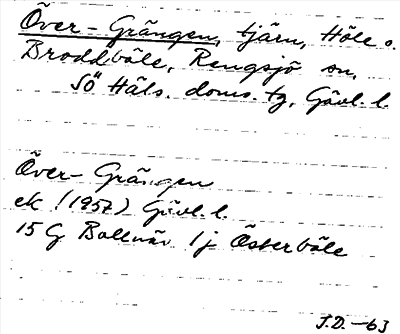 Över-Grängen, tjärn, Höle o.
Broddböle, Rengsjö sn,
Sö Häls. doms. tg, Gävl. l.
Över-Grängen
ek (1957) Gävl. l.
15 G Bollnäs 1 j Österböle
J.D. -63